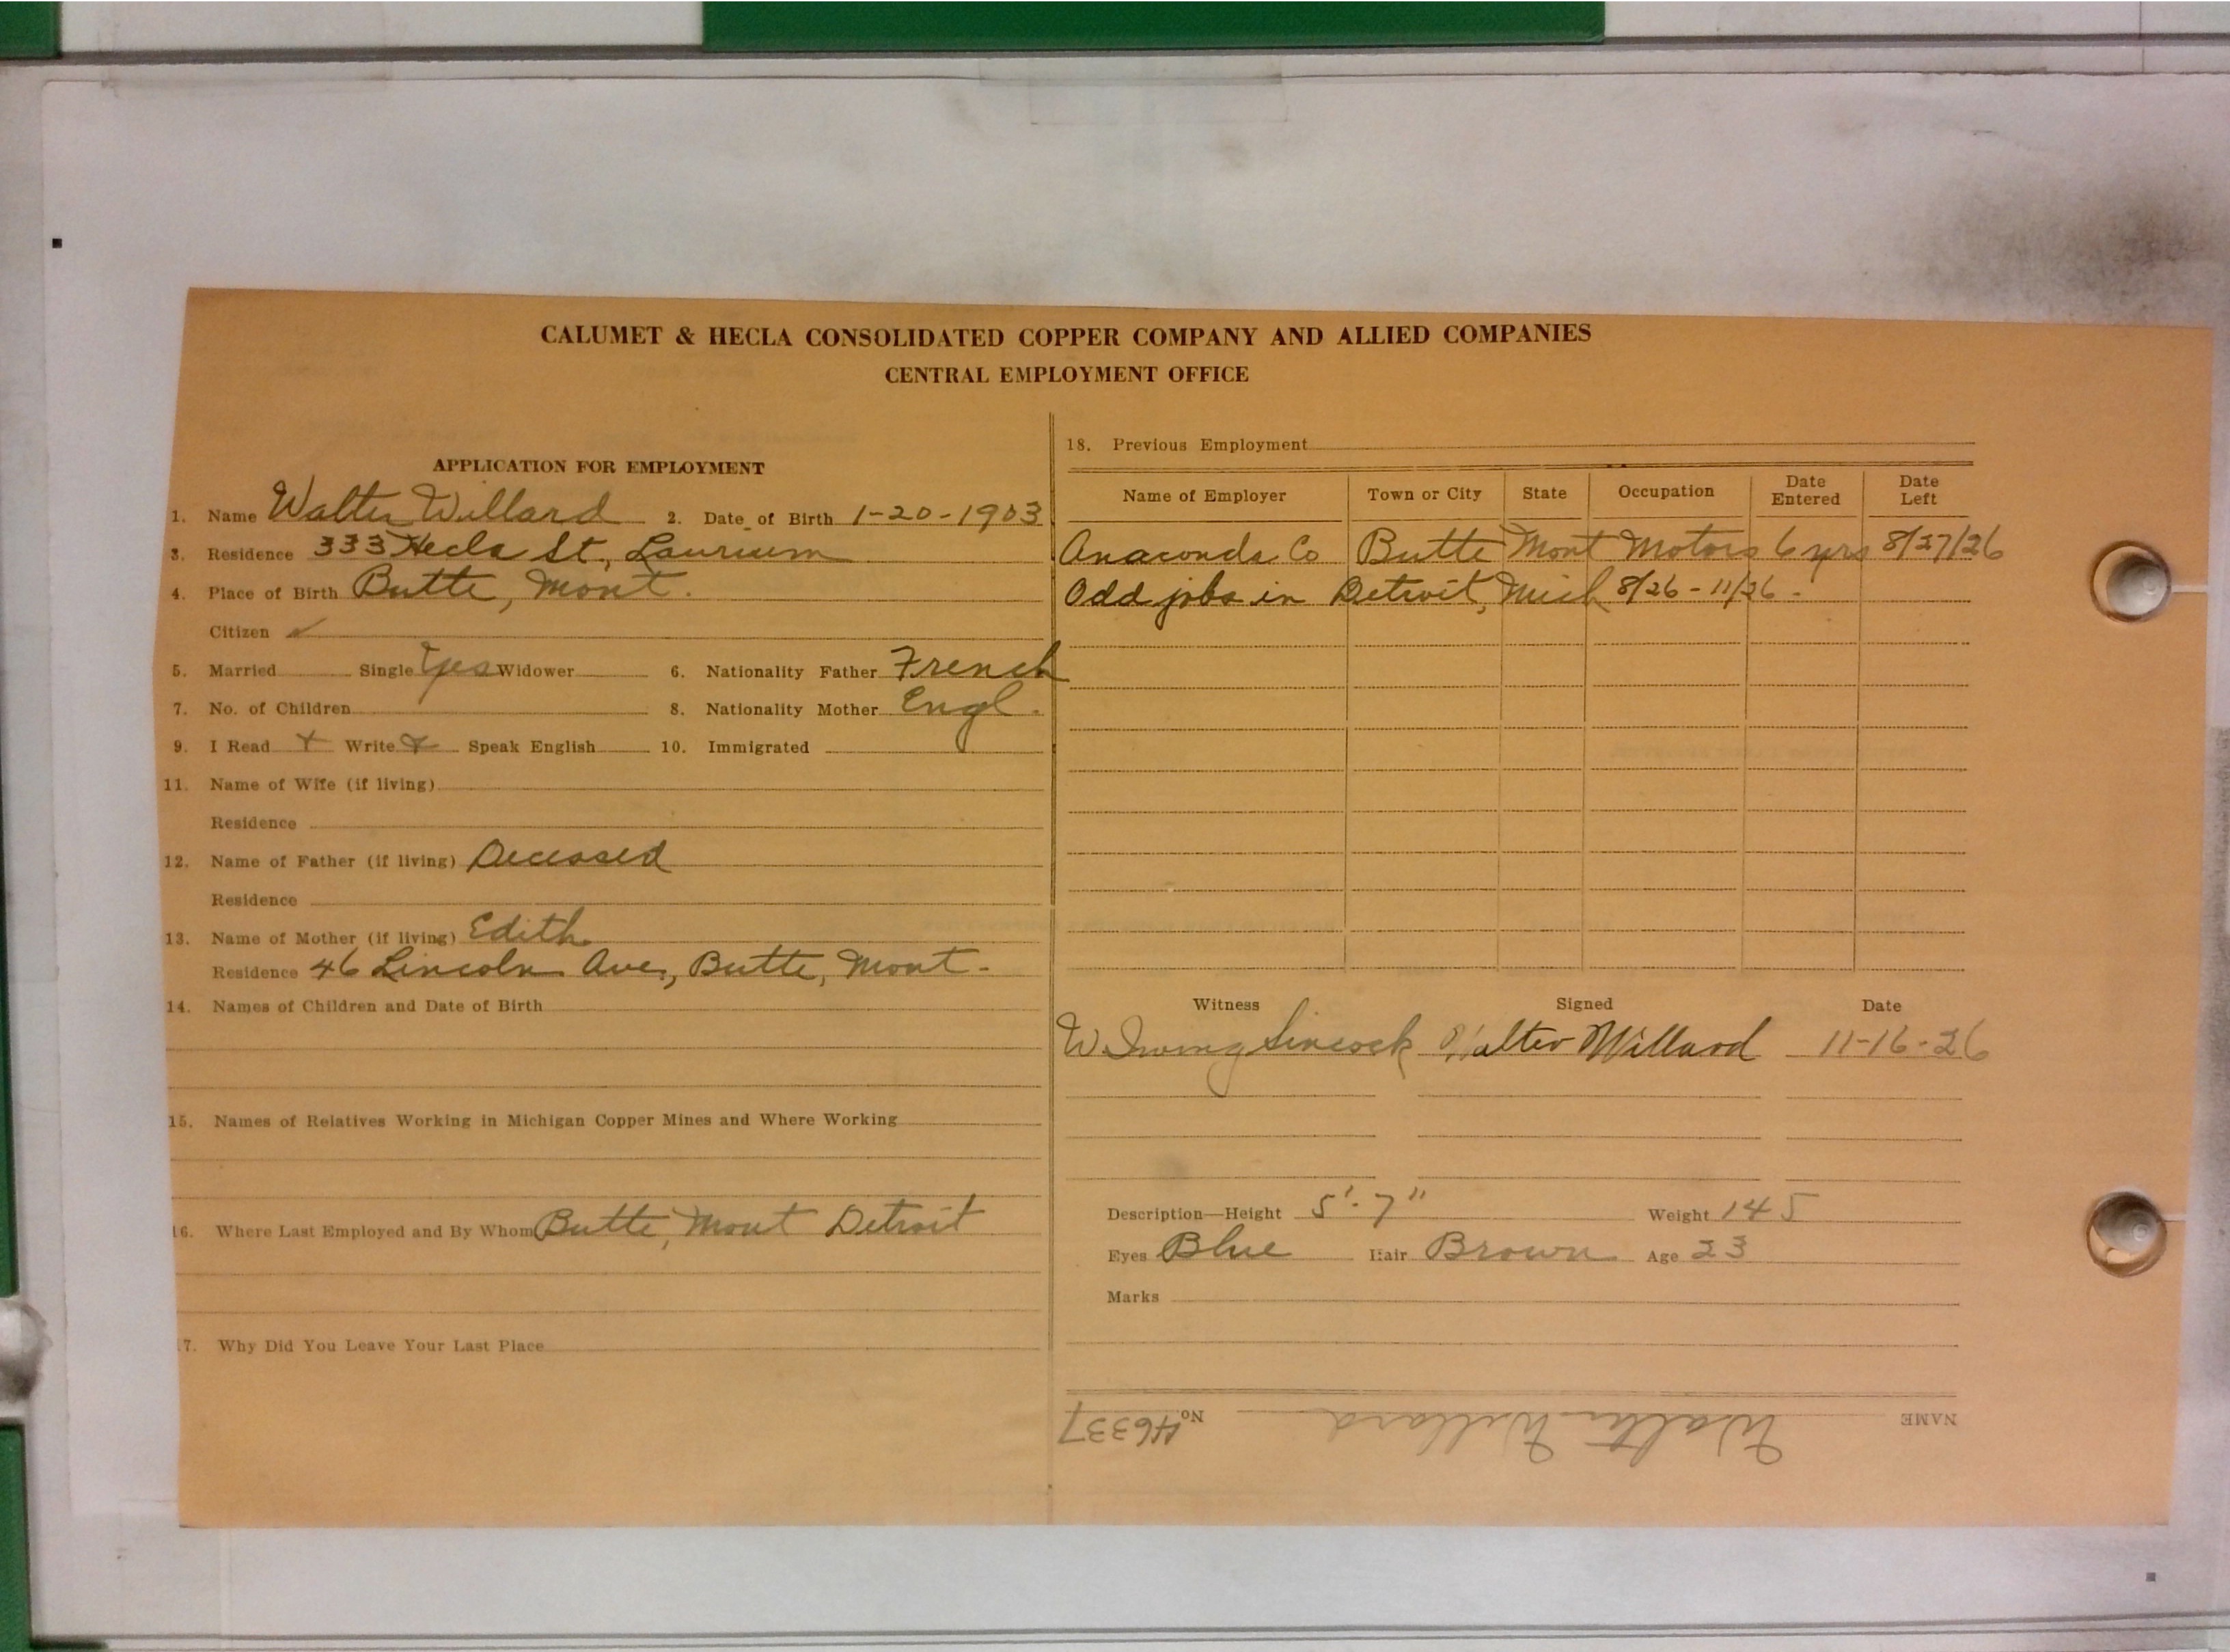 CALUMET & HECLA CONSOLIDATED COPPER COMPANY AND ALLIED COMPANIES
CENTRAL EMPLOYMENT OFFICE
APPLICATION FOR EMPLOYMENT
1. Name Walter Willard 2. Date of Birth 1-20-1903
3. Residence 333 Hecla St., Laurium
4. Place of Birth Butte, Mont.
Citizen ✓
5. Married Single Yes Widower 6. Nationality Father French
7. No. of Children 8. Nationality Mother Engl.
9. I Read + Write + Speak English 10. Immigrated
11. Name of Wife (if living)
Residence
12. Name of Father (if living) Deceased
Residence
13. Name of Mother (if living) Edith
Residence 46 Lincoln Ave., Butte, Mont.
14. Names of Children and Date of Birth
15. Names of Relatives Working in Michigan Copper Mines and Where Working
16. Where Last Employed and By Whom Butte, Mont Detroit
7. Why Did You Leave Your Last Place
18. Previous Employment
Name of Employer Town or City State Occupation Date Entered Date Left
Anaconda Co Butte Mont Motors 6 yrs 8/27/26
Odd jobs in Detroit, Mich 8/26 - 11/26 -
Witness Signed Date
W. Irving Sincock Walter Willard 11-16-26
Description—Height 5'-7" Weight 145
Eyes Blue Hair Brown Age 23
Marks
NAME Walter Willard No. 46337